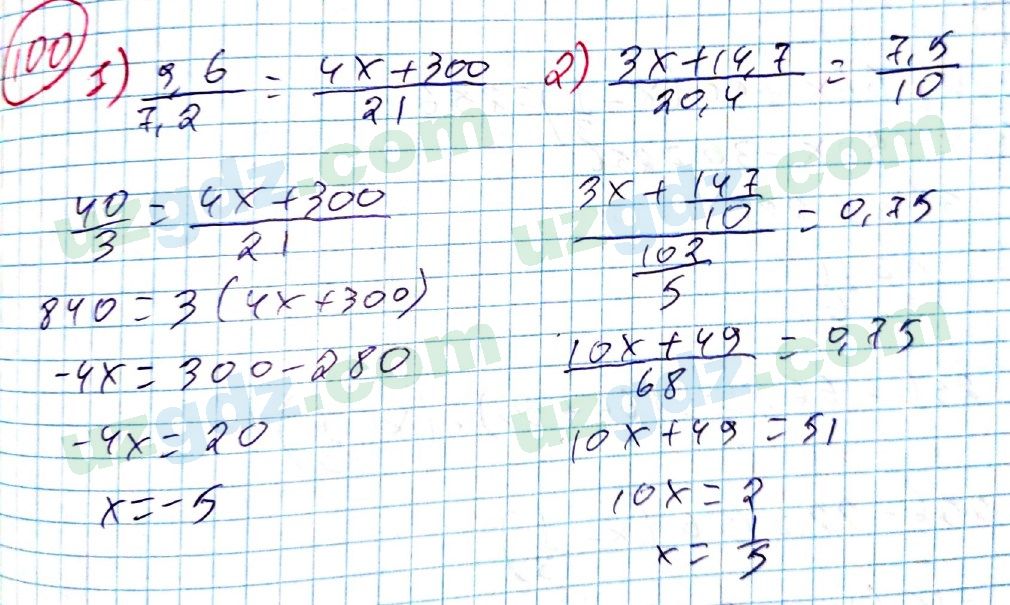 100
1) 9,6/7,2 = (4x+300)/21
40/3 = (4x+300)/21
840 = 3(4x+300)
-4x = 300-280
-4x = 20
x = -5
2) (3x+14,7)/20,4 = 7,5/10
(3x + 147/10)/(102/5) = 0,75
(10x+49)/68 = 0,75
10x+49 = 51
10x = 2
x = 1/5
uzgdz.com
uzgdz.com
uzgdz.com
uzgdz.com